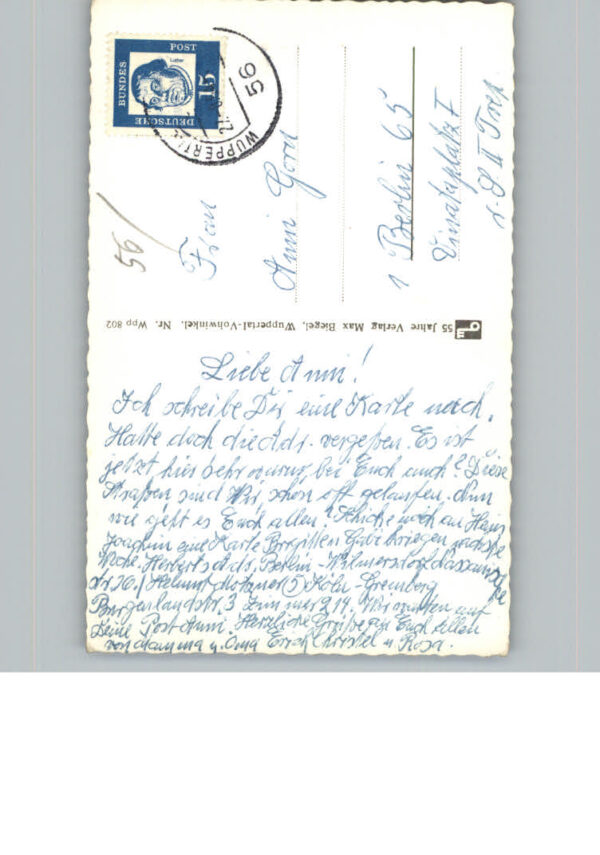 DEUTSCHE
BUNDES
POST
15
Luther
WUPPERTAL
56
56
Frau
Anni Gorn
1 Berlin 65
Vinetaplatz 7
v. S II Trep.
55 Jahre Verlag Max Biegel, Wuppertal-Vohwinkel. Nr. Wpp 802
Liebe Anni!
Ich schreibe Dir eine Karte nach.
Hatte doch die Adr. vergeßen. Es ist
jetzt hier sehr warm, bei Euch auch? Diese
Straßen sind wir schon oft gelaufen. Nun
wie geht es Euch allen? Schicke noch an Hans
Joachim eine Karte Brigitten Gabi kriegen nächste
Woche. Herberts Adr. Berlin-Wilmersdorf
str 26. / Helmut (5) Köln-Gremberg
Burgenlandstr. 3 Zimmer 214. Wir warten auf
Deine Post Anni. Herzliche Grüße an Euch allen
von Mamma u. Oma Erich Christel u. Rosa.